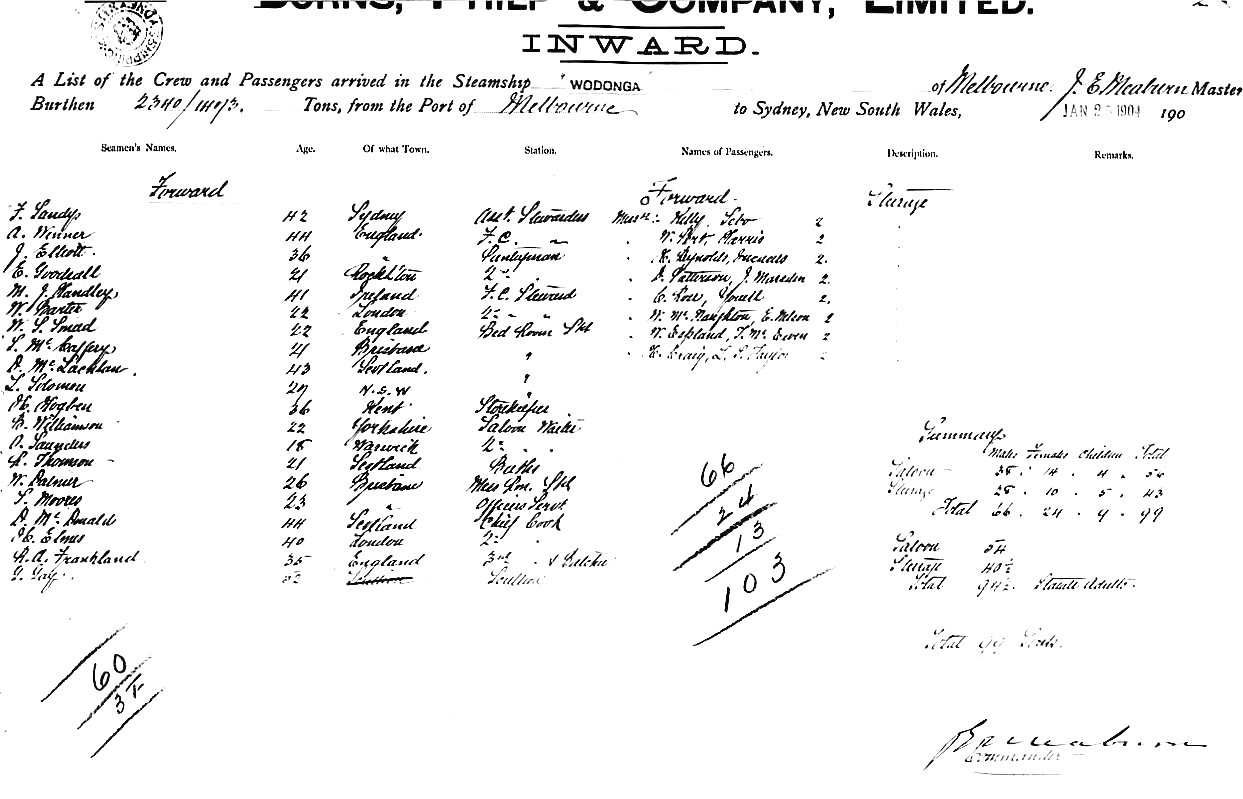 BURNS, PHILP & COMPANY, LIMITED.
INWARD.
A List of the Crew and Passengers arrived in the Steamship WODONGA of Melbourne. J. E. Meaburn Master
Burthen 2340/1403. Tons, from the Port of Melbourne to Sydney, New South Wales, JAN 1904 190
Seamen's Names. Age. Of what Town. Station. Names of Passengers. Description. Remarks.
Forward Forward Sterage
F. Sandys 42 Sydney Asst. Stewardess Kelly, 2
A. Winner 44 England. F.C. " 2
J. Elliott 36 " Pantryman K. Reynolds, 2.
E. Goodsall 21 Rockh'ton 2nd . D. Patterson, J. Marsden 2.
M. J. Handley 41 Ireland F.C. Steward C. Rose, 2.
W. Carter 22 London 2nd " " W. McNaughton, E. Nelson 2
W. S. Smad 22 England Bed Room Std W. England, T. McEwen 2
S. McCaffery 21 Brisbane " H. Craig, L. P. Taylor 2
D. McLachlan. 43 Scotland. "
L. Solomon 29 N.S.W "
H. Hogben 36 Kent Storekeeper
B. Williamson 22 Yorkshire Saloon Waiter
A. Saunders 18 Warwick 2nd " .
R. Thomson 21 Scotland Baths
W. Palmer 26 Brisbane Mess Rm. Std
S. Moores 23 " Officers Servt
D. McDonald 44 Scotland Chief Cook
H. Elms 40 London 2nd "
A. A. Frankland 35 England 3rd " & Butcher
G. Gay. 22 Scullion
Summary
Males Females Children Total
Saloon 38 . 14 . 4 . 56
Sterage 28 . 10 . 5 . 43
Total 66 . 24 . 9 . 99
Saloon 54
Sterage 40½
Total 94½. Statute Adults.
Total 99 Souls.
66
24
13
103
60
Commander